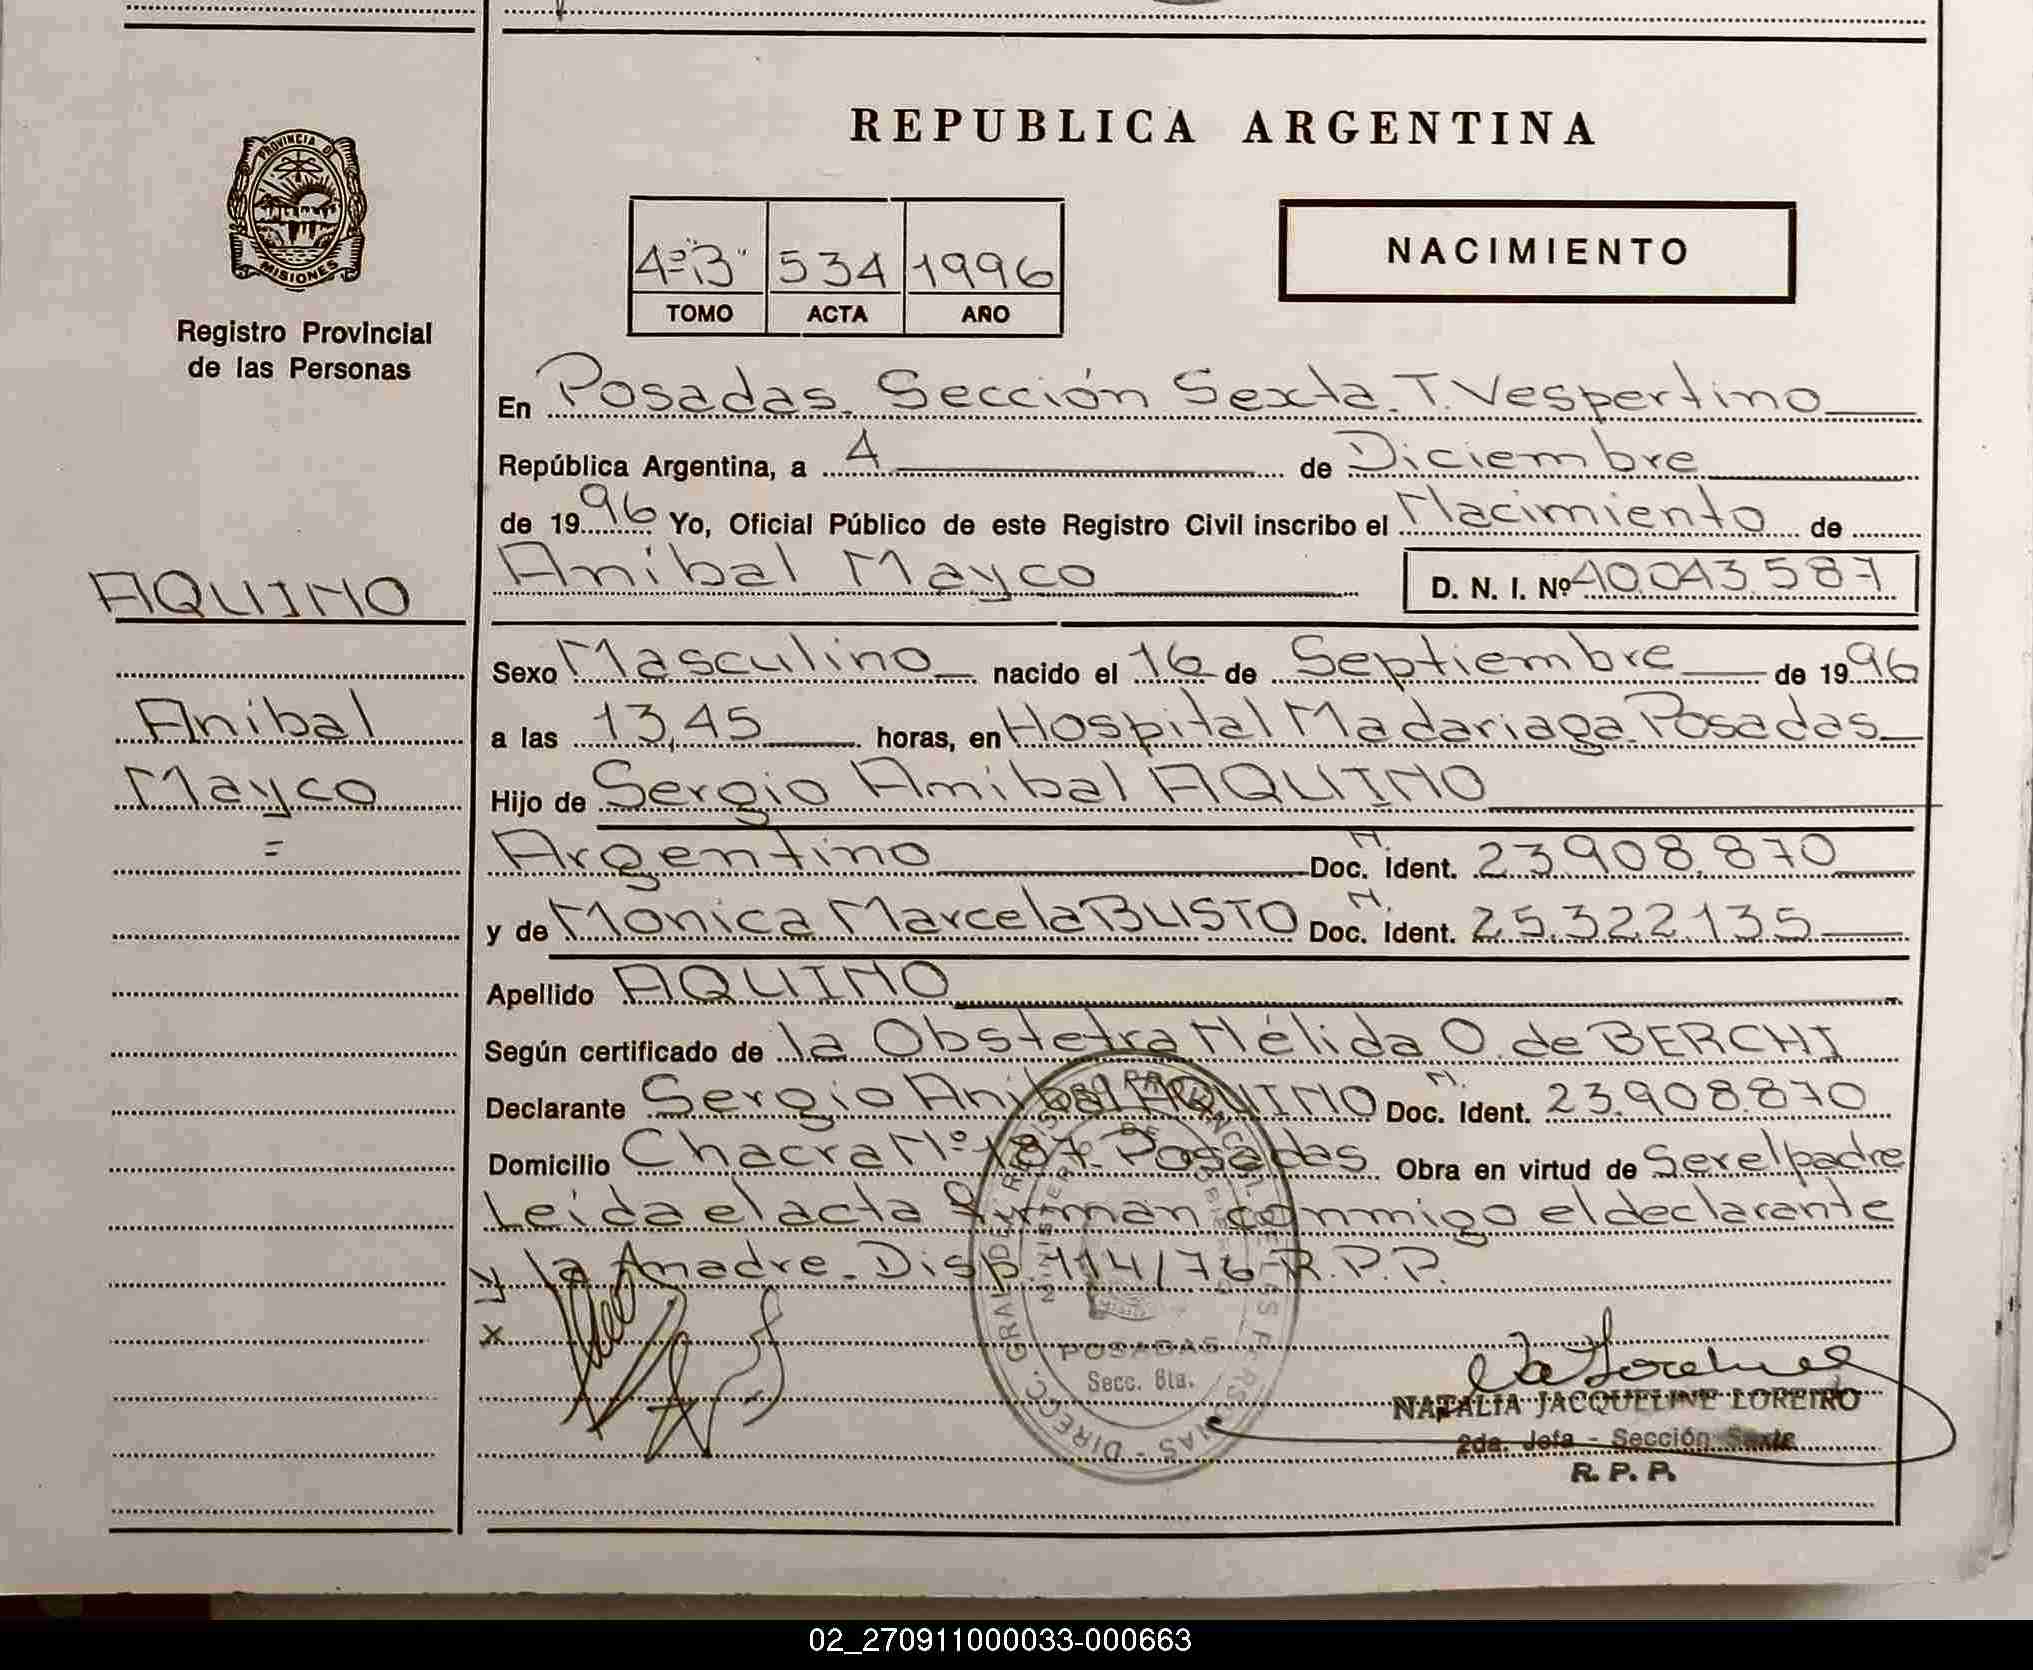 REPUBLICA ARGENTINA
PROVINCIA DE
MISIONES
Registro Provincial
de las Personas
4º "B" 534 1996
TOMO ACTA AÑO
NACIMIENTO
En Posadas. Sección Sexta. T. Vespertino
República Argentina, a 4 de Diciembre
de 1996 Yo, Oficial Público de este Registro Civil inscribo el Nacimiento de
Anibal Mayco D. N. I. Nº 40.043.587
AQUINO
Anibal
Mayco
=
Sexo Masculino nacido el 16 de Septiembre de 1996
a las 13,45 horas, en Hospital Madariaga Posadas
Hijo de Sergio Anibal AQUINO
Argentino N. Doc. Ident. 23.908.870
y de Monica Marcela BUSTO N. Doc. Ident. 25.322.135
Apellido AQUINO
Según certificado de la Obstetra Nélida O. de BERCHI
Declarante Sergio Anibal AQUINO N. Doc. Ident. 23.908.870
Domicilio Chacra Nº 187. Posadas Obra en virtud de Ser el padre
Leida el acta firman conmigo el declarante
y la madre. Disp. 114/76 R.P.P.
x
POSADAS
Secc. 6ta.
NATALIA JACQUELINE LOREIRO
2da. Jefa - Sección Sexta
R. P. P.
02_270911000033-000663